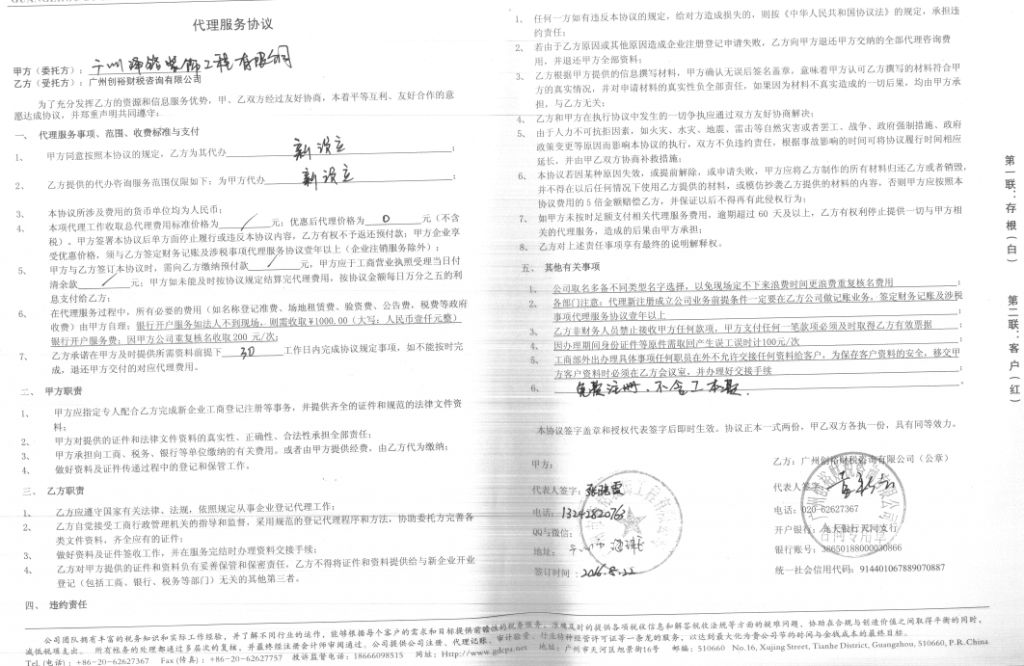 代理服务协议
甲方（委托方）：
乙方（受托方）：广州创裕财税咨询有限公司
为了充分发挥乙方的资源和信息服务优势，甲、乙双方经过友好协商，本着平等互利、友好合作的意
愿达成协议，并郑重声明共同遵守：
一、 代理服务事项、范围、收费标准与支付
1、 甲方同意按照本协议的规定，乙方为其代办 新设立 ；
2、 乙方提供的代办咨询服务范围仅限如下：为甲方代办 新设立
；
3、 本协议所涉及费用的货币单位均为人民币；
4、 本项代理工作收取总代理费用标准价格为 / 元；优惠后代理价格为 0 元（不含
税）。甲方签署本协议后单方面停止履行或违反本协议内容，乙方有权不予退还预付款；甲方企业享
受优惠价格，须与乙方签定财务记账及涉税事项代理服务协议壹年以上（企业注销服务除外）；
5、 甲方与乙方签订本协议时，需向乙方缴纳预付款 / 元，甲方应于工商营业执照受理当日付
清余款 / 元；甲方如未能及时按协议规定结算完代理费用，按协议金额每日万分之五的利
息支付给乙方；
6、 在代理服务过程中，所有必要的费用（如名称登记准费、场地租赁费、验资费、公告费，税费等政府
收费）由甲方自理；银行开户服务如法人不到现场，则需收取¥1000.00（大写：人民币壹仟元整）
银行开户服务费；因甲方公司重复核名收取 200 元/次；
7、 乙方承诺在甲方及时提供所需资料前提下 30 工作日内完成协议规定事项，如不能按时完
成，退还甲方交付的对应代理费用。
二、 甲方职责
1、 甲方应指定专人配合乙方完成新企业工商登记注册等事务，并提供齐全的证件和规范的法律文件资
料；
2、 甲方对提供的证件和法律文件资料的真实性、正确性、合法性承担全部责任；
3、 甲方承担向工商、税务、银行等单位缴纳的有关费用。或者由甲方提供经费，由乙方代为缴纳；
4、 做好资料及证件传递过程中的登记和保管工作。
三、 乙方职责
1、 乙方应遵守国家有关法律、法规，依照规定从事企业登记代理工作；
2、 乙方自觉接受工商行政管理机关的指导和监督，采用规范的登记代理程序和方法，协助委托方完善各
类文件资料、齐全应有的证件；
3、 做好资料及证件签收工作，并在服务完结时办理资料交接手续；
4、 乙方对甲方提供的证件和资料负有妥善保管和保密责任，乙方不得将证件和资料提供给与新企业开业
登记（包括工商、银行、税务等部门）无关的其他第三者。
四、 违约责任
1、 任何一方如有违反本协议的规定，给对方造成损失的，则按《中华人民共和国协议法》的规定，承担违
约责任；
2、 若由于乙方原因或其他原因造成企业注册登记申请失败，乙方向甲方退还甲方交纳的全部代理咨询费
用，并退还甲方全部资料；
3、 乙方根据甲方提供的信息撰写材料，甲方确认无误后签名盖章，意味着甲方认可乙方撰写的材料符合甲
方的真实情况，并对申请材料的真实性负全部责任，如果因为材料不真实造成的一切后果，均由甲方承
担，与乙方无关；
4、 乙方和甲方在执行协议中发生的一切争执应通过双方友好协商解决；
5、 由于人力不可抗拒因素，如火灾、水灾、地震、雷击等自然灾害或者罢工、战争、政府强制措施、政府
政策变更等原因而影响本协议的执行，双方不负违约责任，根据事故影响的时间可将协议履行时间相应
延长，并由甲乙双方协商补救措施；
6、 本协议若因某种原因失效，或提前解除，或申请失败，甲方应将乙方制作的所有材料归还乙方或者销毁，
并不得在以后任何情况下使用乙方提供的材料，或模仿抄袭乙方提供的材料的内容，否则甲方应按照本
协议费用的 5 倍金额赔偿乙方，并保证以后不得再有此侵权行为；
7、 如甲方未按时足额支付相关代理服务费用，逾期超过 60 天及以上，乙方有权利停止提供一切与甲方相
关的代理服务，造成的后果由甲方承担；
8、 乙方对上述责任事项享有最终的说明解释权。
五、 其他有关事项
1、 公司取名多备不同类型名字选择，以免现场定不下来浪费时间更浪费重复核名费用
2、 各部门注意：代理新注册成立公司业务前提条件一定要在乙方公司做记账业务，签定财务记账及涉税
事项代理服务协议壹年以上
3、 乙方非财务人员禁止接收甲方任何款项，甲方支付任何一笔款项必须及时取得乙方有效票据
4、 因办理期间身份证件等原件需取回产生误工误时计100元/次
5、 工商部外出办理具体事项任何职员在外不允许交接任何资料给客户，为保存客户资料的安全，移交甲
方客户资料时必须在乙方会议室，并办理好交接手续
6、 免费注册，不含工本费.
本协议签字盖章和授权代表签字后即时生效。协议正本一式两份，甲乙双方各执一份，具有同等效力。
甲方：
代表人签字：
电话：13242820763
QQ与微信：
地址：
签订时间：
乙方：广州创裕财税咨询有限公司（公章）
代表人签字：
电话：020-62627367
开户银行：光大银行天河支行
银行账号：38650188000030866
统一社会信用代码：914401067889070887
第一联：存根（白）
第二联：客户（红）
Tel（电话）：+86-20-62627367 Fax（传真）：+86-20-62627757 投诉监督电话：18666098515 网址：Http://www.gdcpa.net 地址：广州市天河区旭景街16号 邮编：510660 No.16, Xujing Street, Tianhe District, Guangzhou, 510660, P.R.China